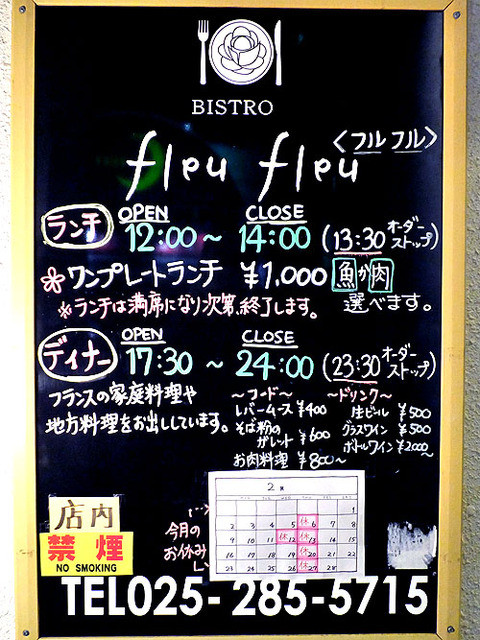 BISTRO
fleu fleu
〈フルフル〉
ランチ OPEN 12:00 ~ CLOSE 14:00 (13:30 オーダーストップ)
ワンプレートランチ ¥1,000 魚か肉
※ランチは満席になり次第、終了します。 選べます。
ディナー OPEN 17:30 ~ CLOSE 24:00 (23:30 オーダーストップ)
フランスの家庭料理や
地方料理をお出ししています。
~フード~
レバームース ¥400
そば粉の
ガレット ¥600
お肉料理 ¥800~
~ドリンク~
生ビール ¥500
グラスワイン ¥500
ボトルワイン ¥2000~
今月の
お休み
2月
1
2 3 4 5 休6 7 8
9 10 11 休12 休13 14 15
16 17 18 19 休20 21 22
23 24 25 26 休27 28
店内
禁煙
NO SMOKING
TEL025-285-5715